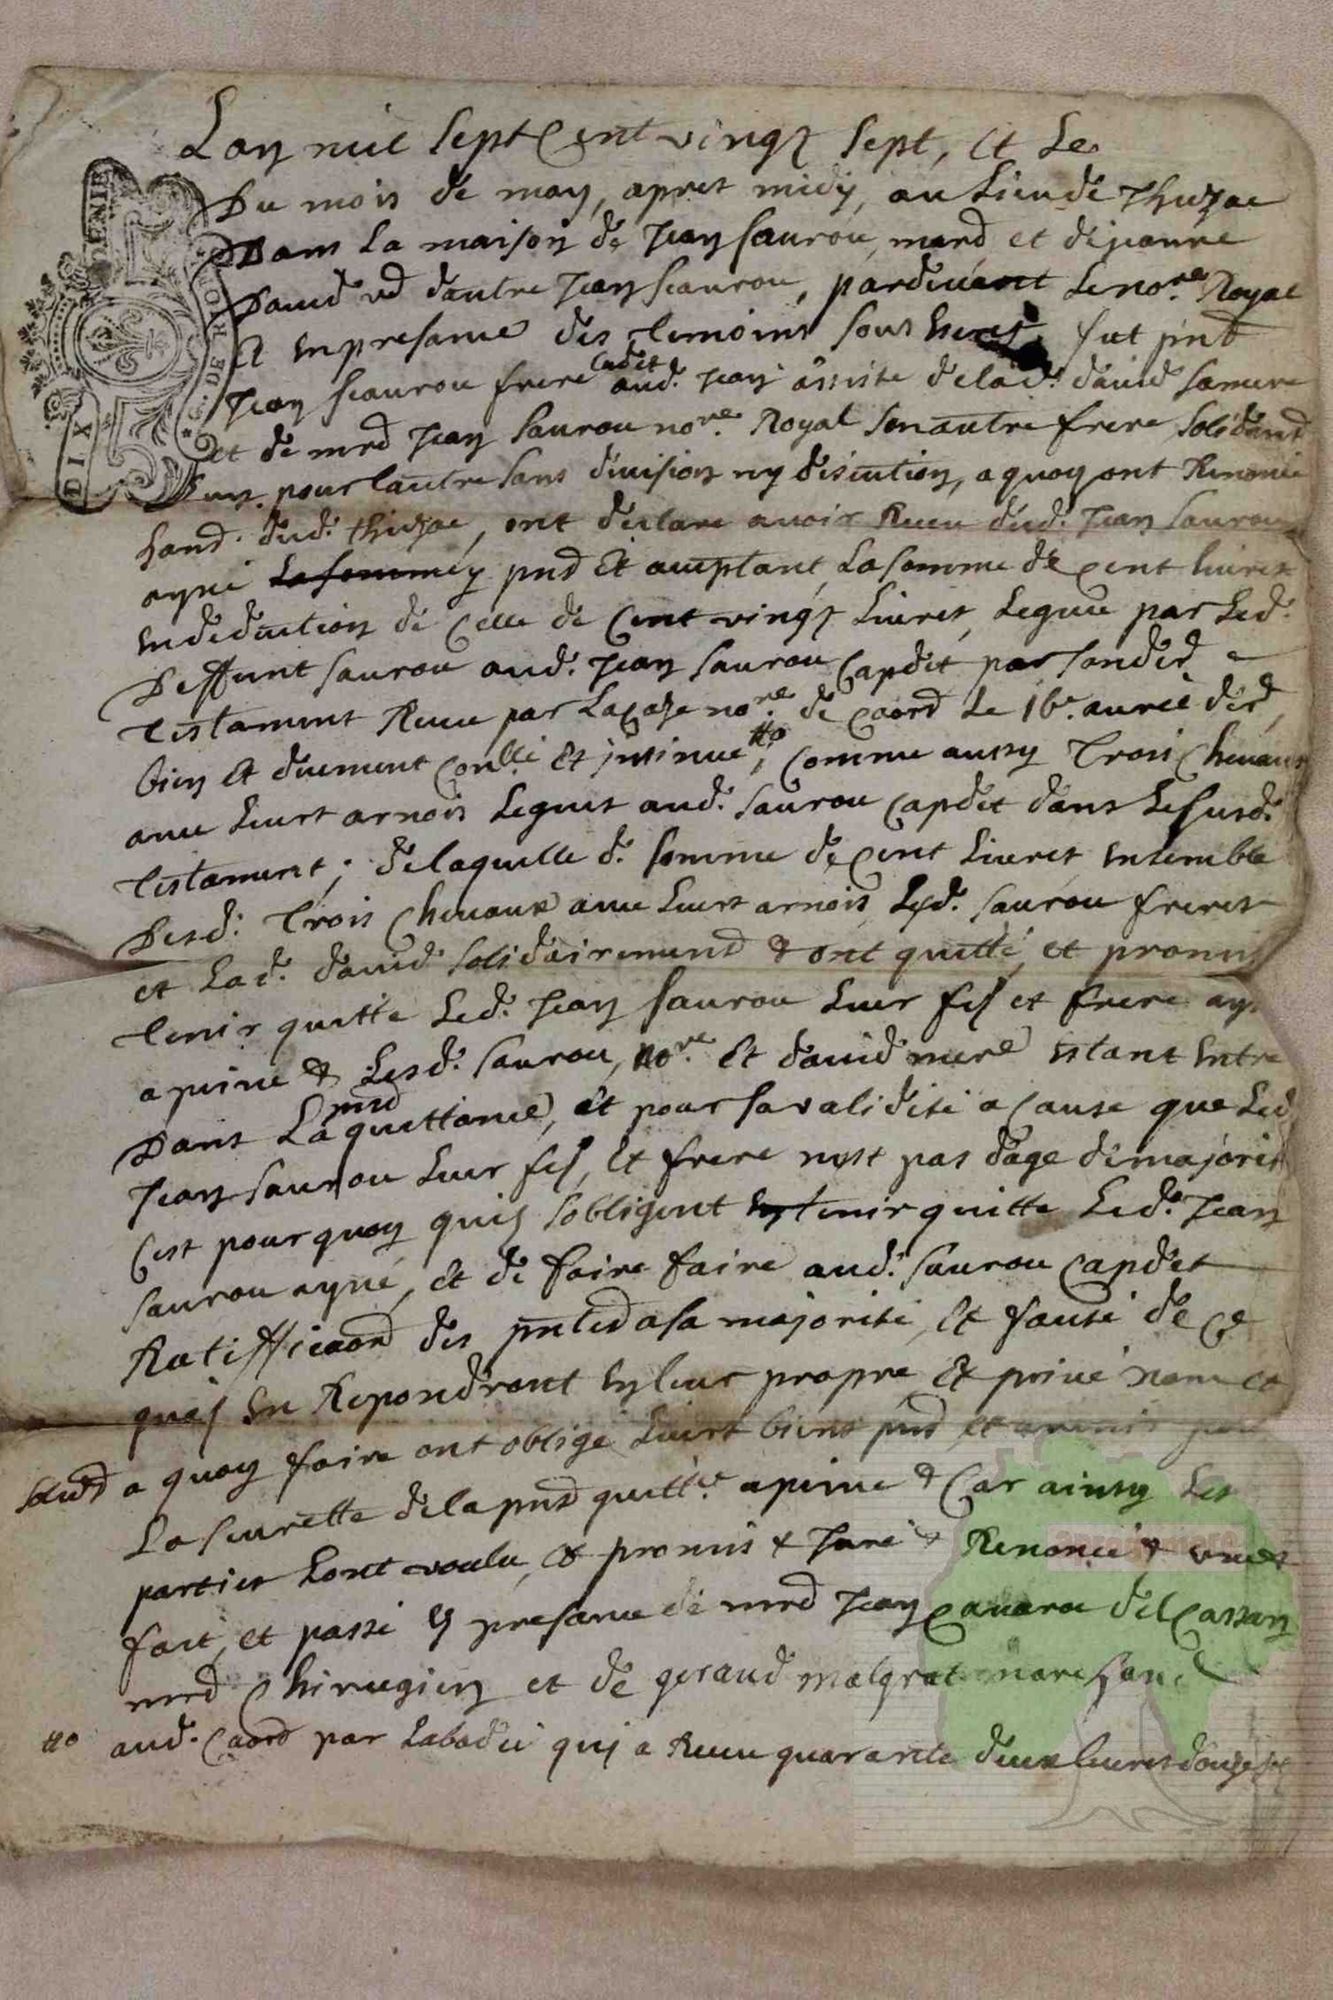 Lan mil sept Cent vingt sept, et Le
Du mois de may, apres midy, au Lieu de Thuzac
Dans La maison de Jean saurou, mard et de jeanne
David vd dautre Jean saurou, pardevant Le nore. Royal
Et en presance des temoins sous fut pnd
cadet
Jean saurou frere aud. Jean assiste de lad. david sa mere
et de mrd Jean saurou nore. Royal son autre frere, solidand
Lun pour lautre sans division ny discution, a quoy ont Renonce
dud. thuzac, ont declare avoir Receu dud. Jean saurou
ayne La somme pnd Et comptant La somme de cent livres
en deduction de Celle de Cent vingt Livres, Legue par Led.
Deffunt saurou aud. Jean saurou Capdet par son
Testament Receu par Lacaze nore. de Caord Le 16e. avril
bien et duement conllé Et insinué #o, Comme aussy Trois Chevaux
avec Leurs arnois Legues aud. saurou Capdet dans Le susd.
Testament; de laquelle d. somme de Cent Livres ensemble
Desd. Trois Chevaux avec Leurs arnois Lesd. saurou freres
et Lad. david solidairement & ont quitté, et promis
Tenir quitte Led. Jean saurou Leur fils et frere
a peine & Lesd. saurou, nore. Et david mere estant entre
pnd
Dans La quittance, et pour sa validité a Cause que Led
Jean saurou Leur fils, Et frere nest pas dage de majorité
Cest pourquoy quils sobligent tenir quitte Led. Jean
saurou ayné, et de faire faire aud. saurou Capdet
Ratifficaon des pntes a sa majorité, Et faute de ce
quils en Repondront en leur propre et privé nom et
solidd a quoy faire ont obligé Leurs biens pnd et avenir
La seurette de la pnd quitte. a peine & Car ainsy Les
parties Lont voulu, & promis & Juré & Renoncé &
fait, et passé en presance de mrd Jean del Cassan
mrd Chirugien et de geraud malgrat
#o aud. Caord par Labadie qui a Receu quarante deux livres douze
DIX
DE